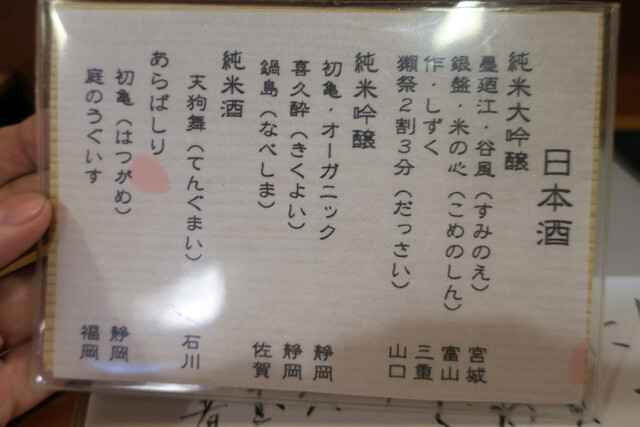 日本酒
純米大吟醸
墨廼江・谷風（すみのえ） 宮城
銀盤・米の心（こめのしん） 富山
作・しずく 三重
獺祭２割３分（だっさい） 山口
純米吟醸
初亀・オーガニック 静岡
喜久酔（きくよい） 静岡
鍋島（なべしま） 佐賀
純米酒
天狗舞（てんぐまい） 石川
あらばしり
初亀（はつがめ） 静岡
庭のうぐいす 福岡